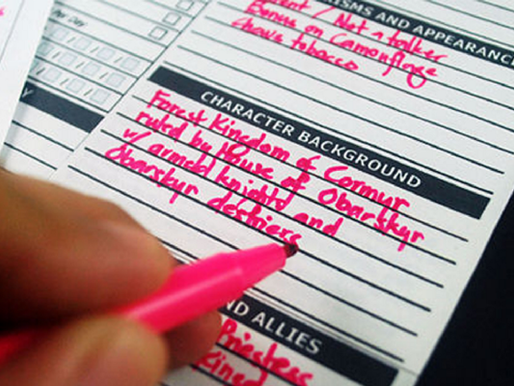 er Day
ISMS AND APPEARANC
/ Not a talker
Banana on Camouflage
chews tobacco
CHARACTER BACKGROUND
Forest Kingdom of Cormyr
ruled by House of Obarskyr
w/ armed knights and
Obarskyr destriers
ND ALLIES
Priestess